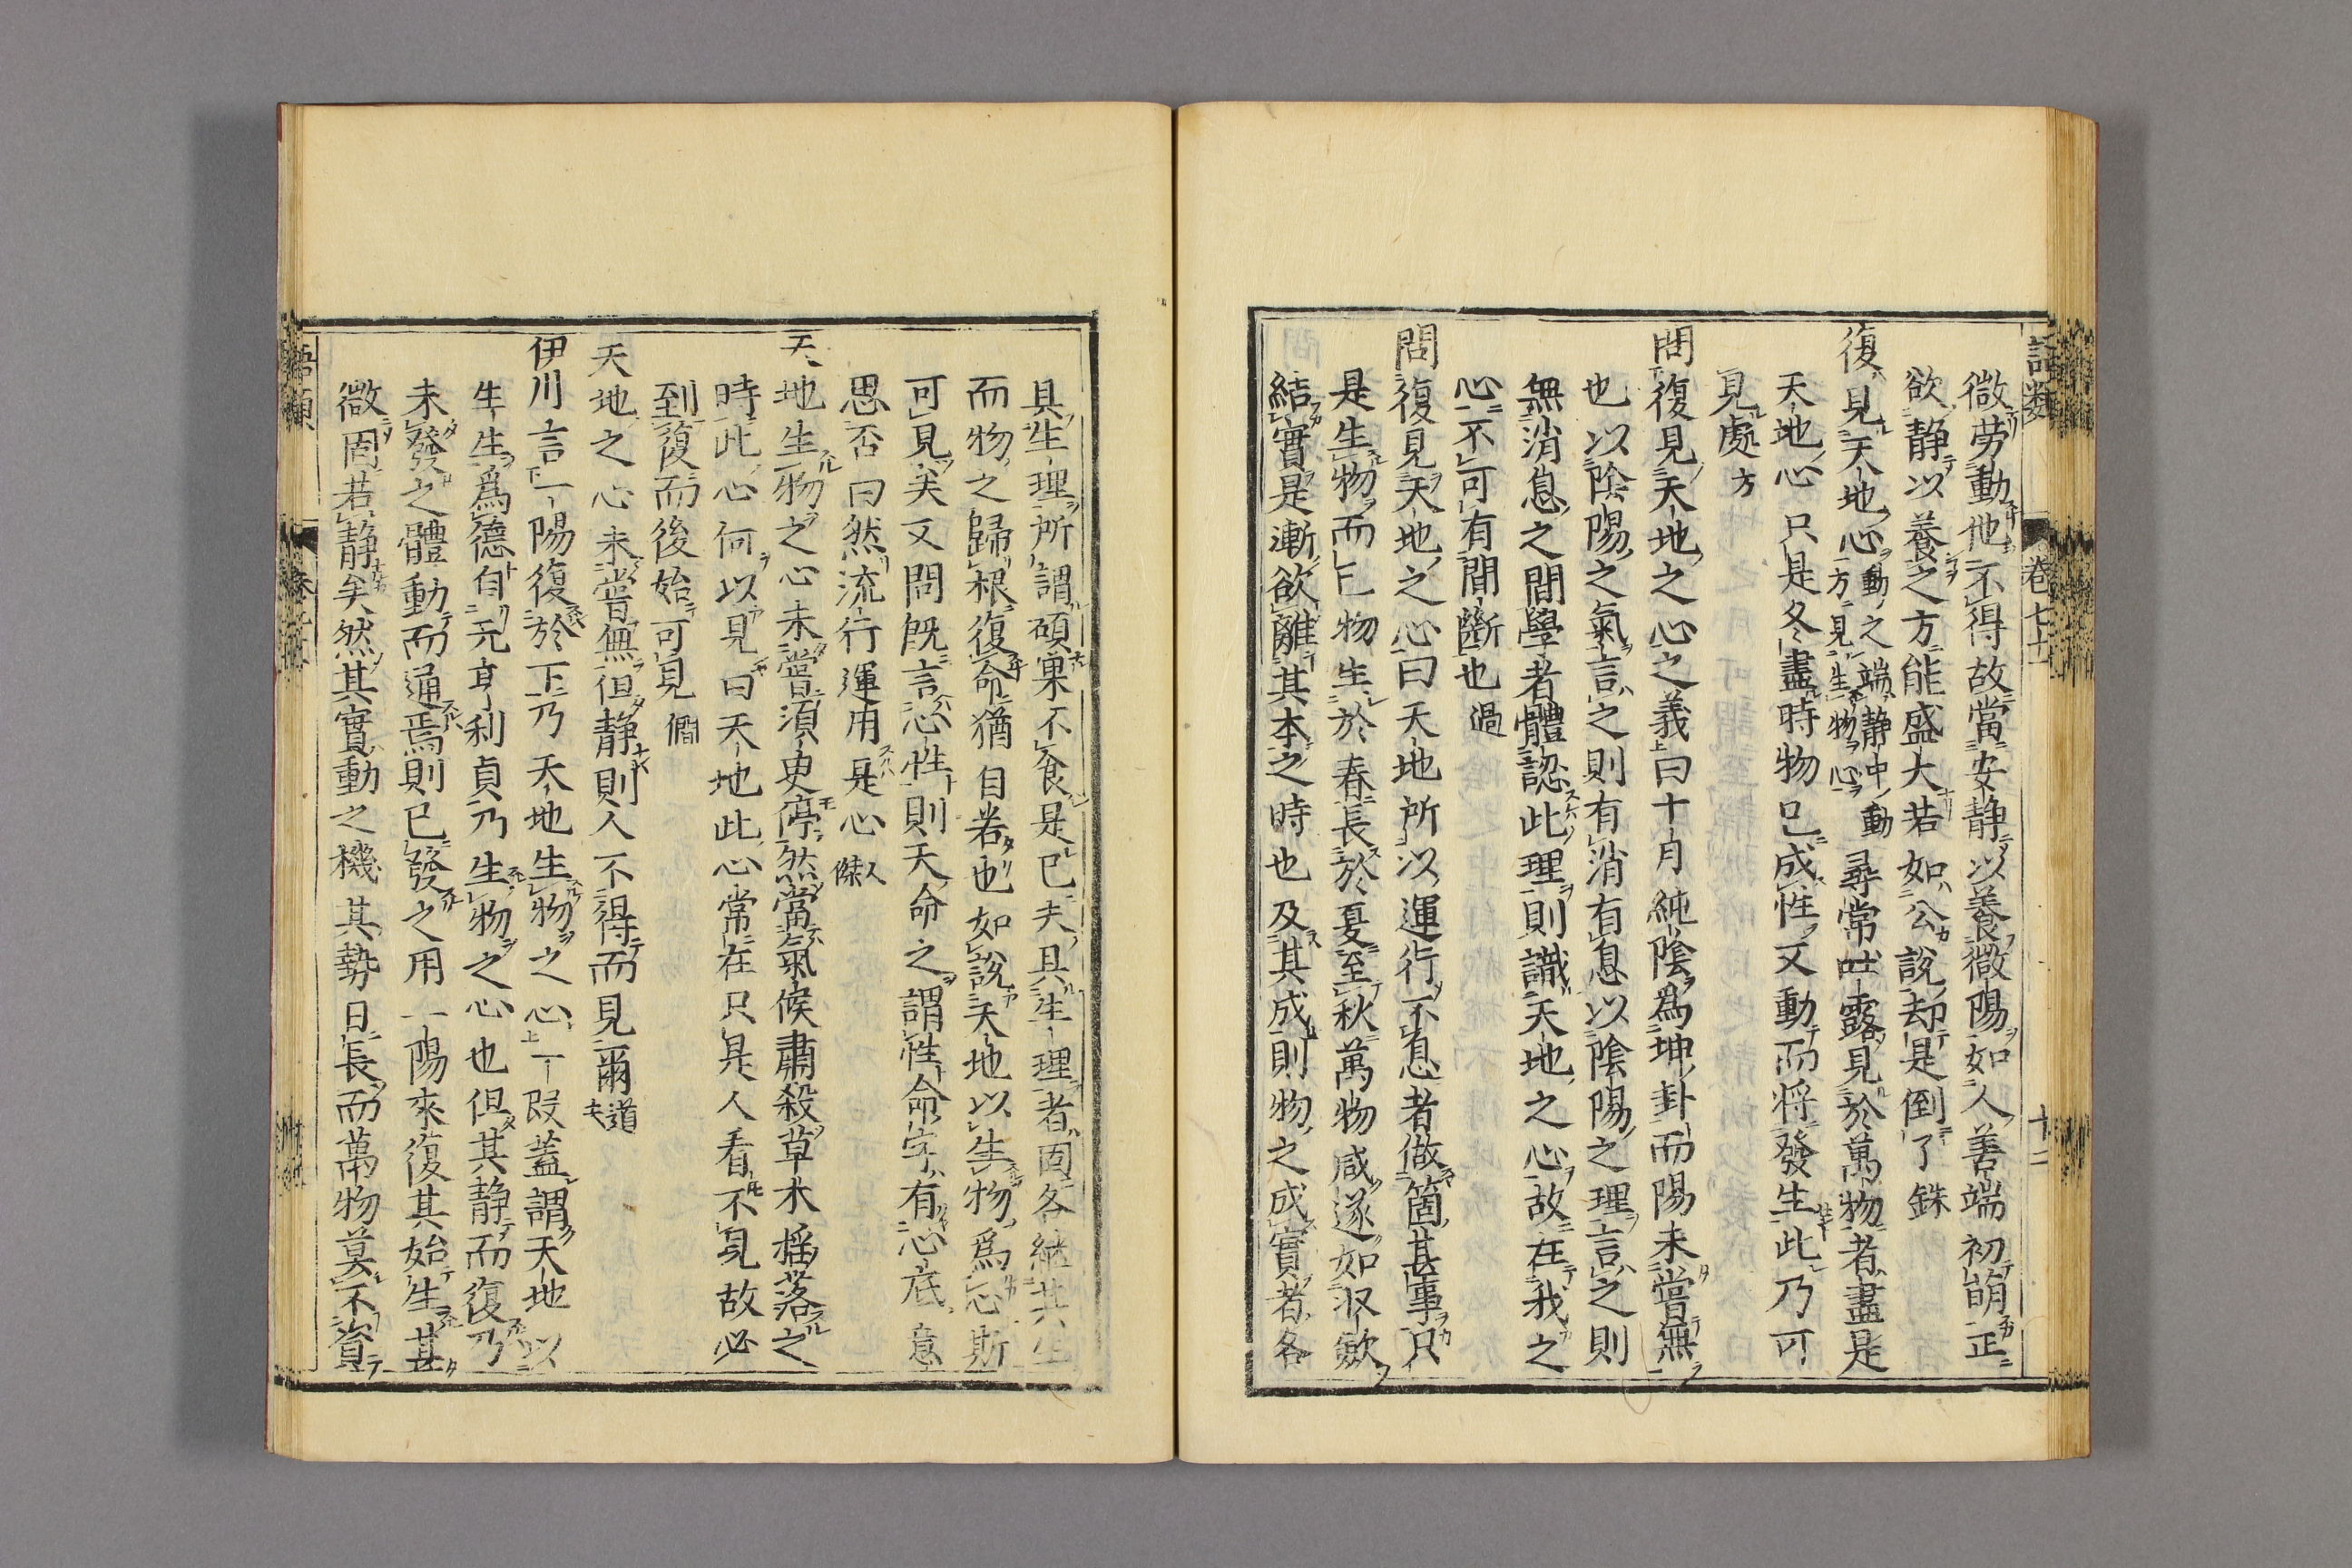 語類 卷七十一 十二
微勞動他不得故當安静以養微陽如人善端初萌正
欲静以養之方能盛大若如公說却是倒了銖
復見天地心動之端静中動方見生物心尋常吐露見於萬物者盡是
天地心只是冬盡時物已成性又動而将發生此乃可
見處方
問復見天地之心之義曰十月純陰爲坤卦而陽未嘗無
也以陰陽之氣言之則有消有息以陰陽之理言之則
無消息之間學者體認此理則識天地之心故在我之
心不可有間斷也過
問復見天地之心曰天地所以運行不息者做箇甚事只
是生物而已物生於春長於夏至秋萬物咸遂如収斂
結實是漸欲離其本之時也及其成則物之成實者各
具生理所謂碩果不食是已夫具生理者固各継其生
而物之歸根復命猶自若也如說天地以生物爲心斯
可見矣又問既言心性則天命之謂性命字有心底意
思否曰然流行運用是心人傑
天地生物之心未嘗須臾停然當氣候肅殺草木揺落之
時此心何以見曰天地此心常在只是人看不見故必
到復而後始可見僩
天地之心未嘗無但静則人不得而見爾道夫
伊川言一陽復於下乃天地生物之心一段蓋謂天地以
生生爲德自元亨利貞乃生物之心也但其静而復乃
未發之體動而通焉則已發之用一陽來復其始生甚
微固若静矣然其實動之機其勢日長而萬物莫不資